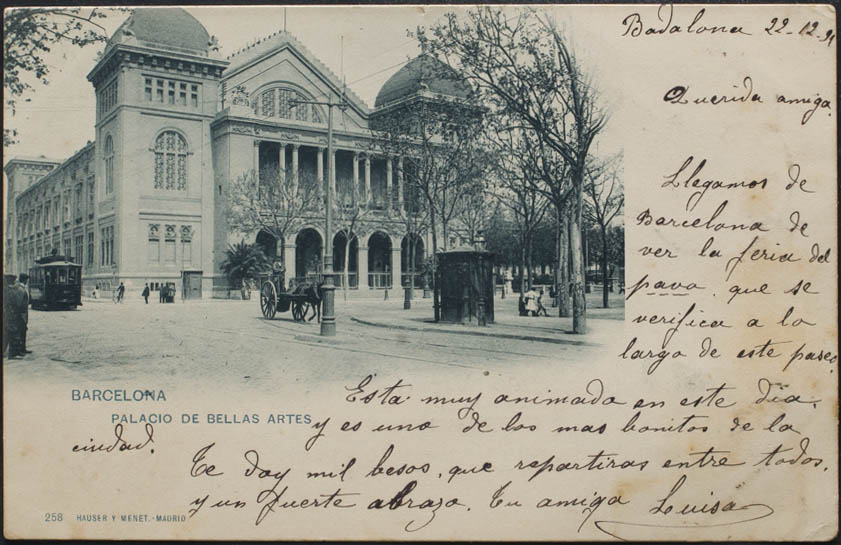 Badalona 22-12-
Querida amiga.
Llegamos de
Barcelona de
ver la feria del
pavo, que se
verifica a lo
largo de este paseo
Esta muy animada en este dia,
y es uno de los mas bonitos de la
ciudad.
Te doy mil besos, que repartiras entre todos,
y un fuerte abrazo. Tu amiga Luisa
BARCELONA
PALACIO DE BELLAS ARTES
258 HAUSER Y MENET.-MADRID